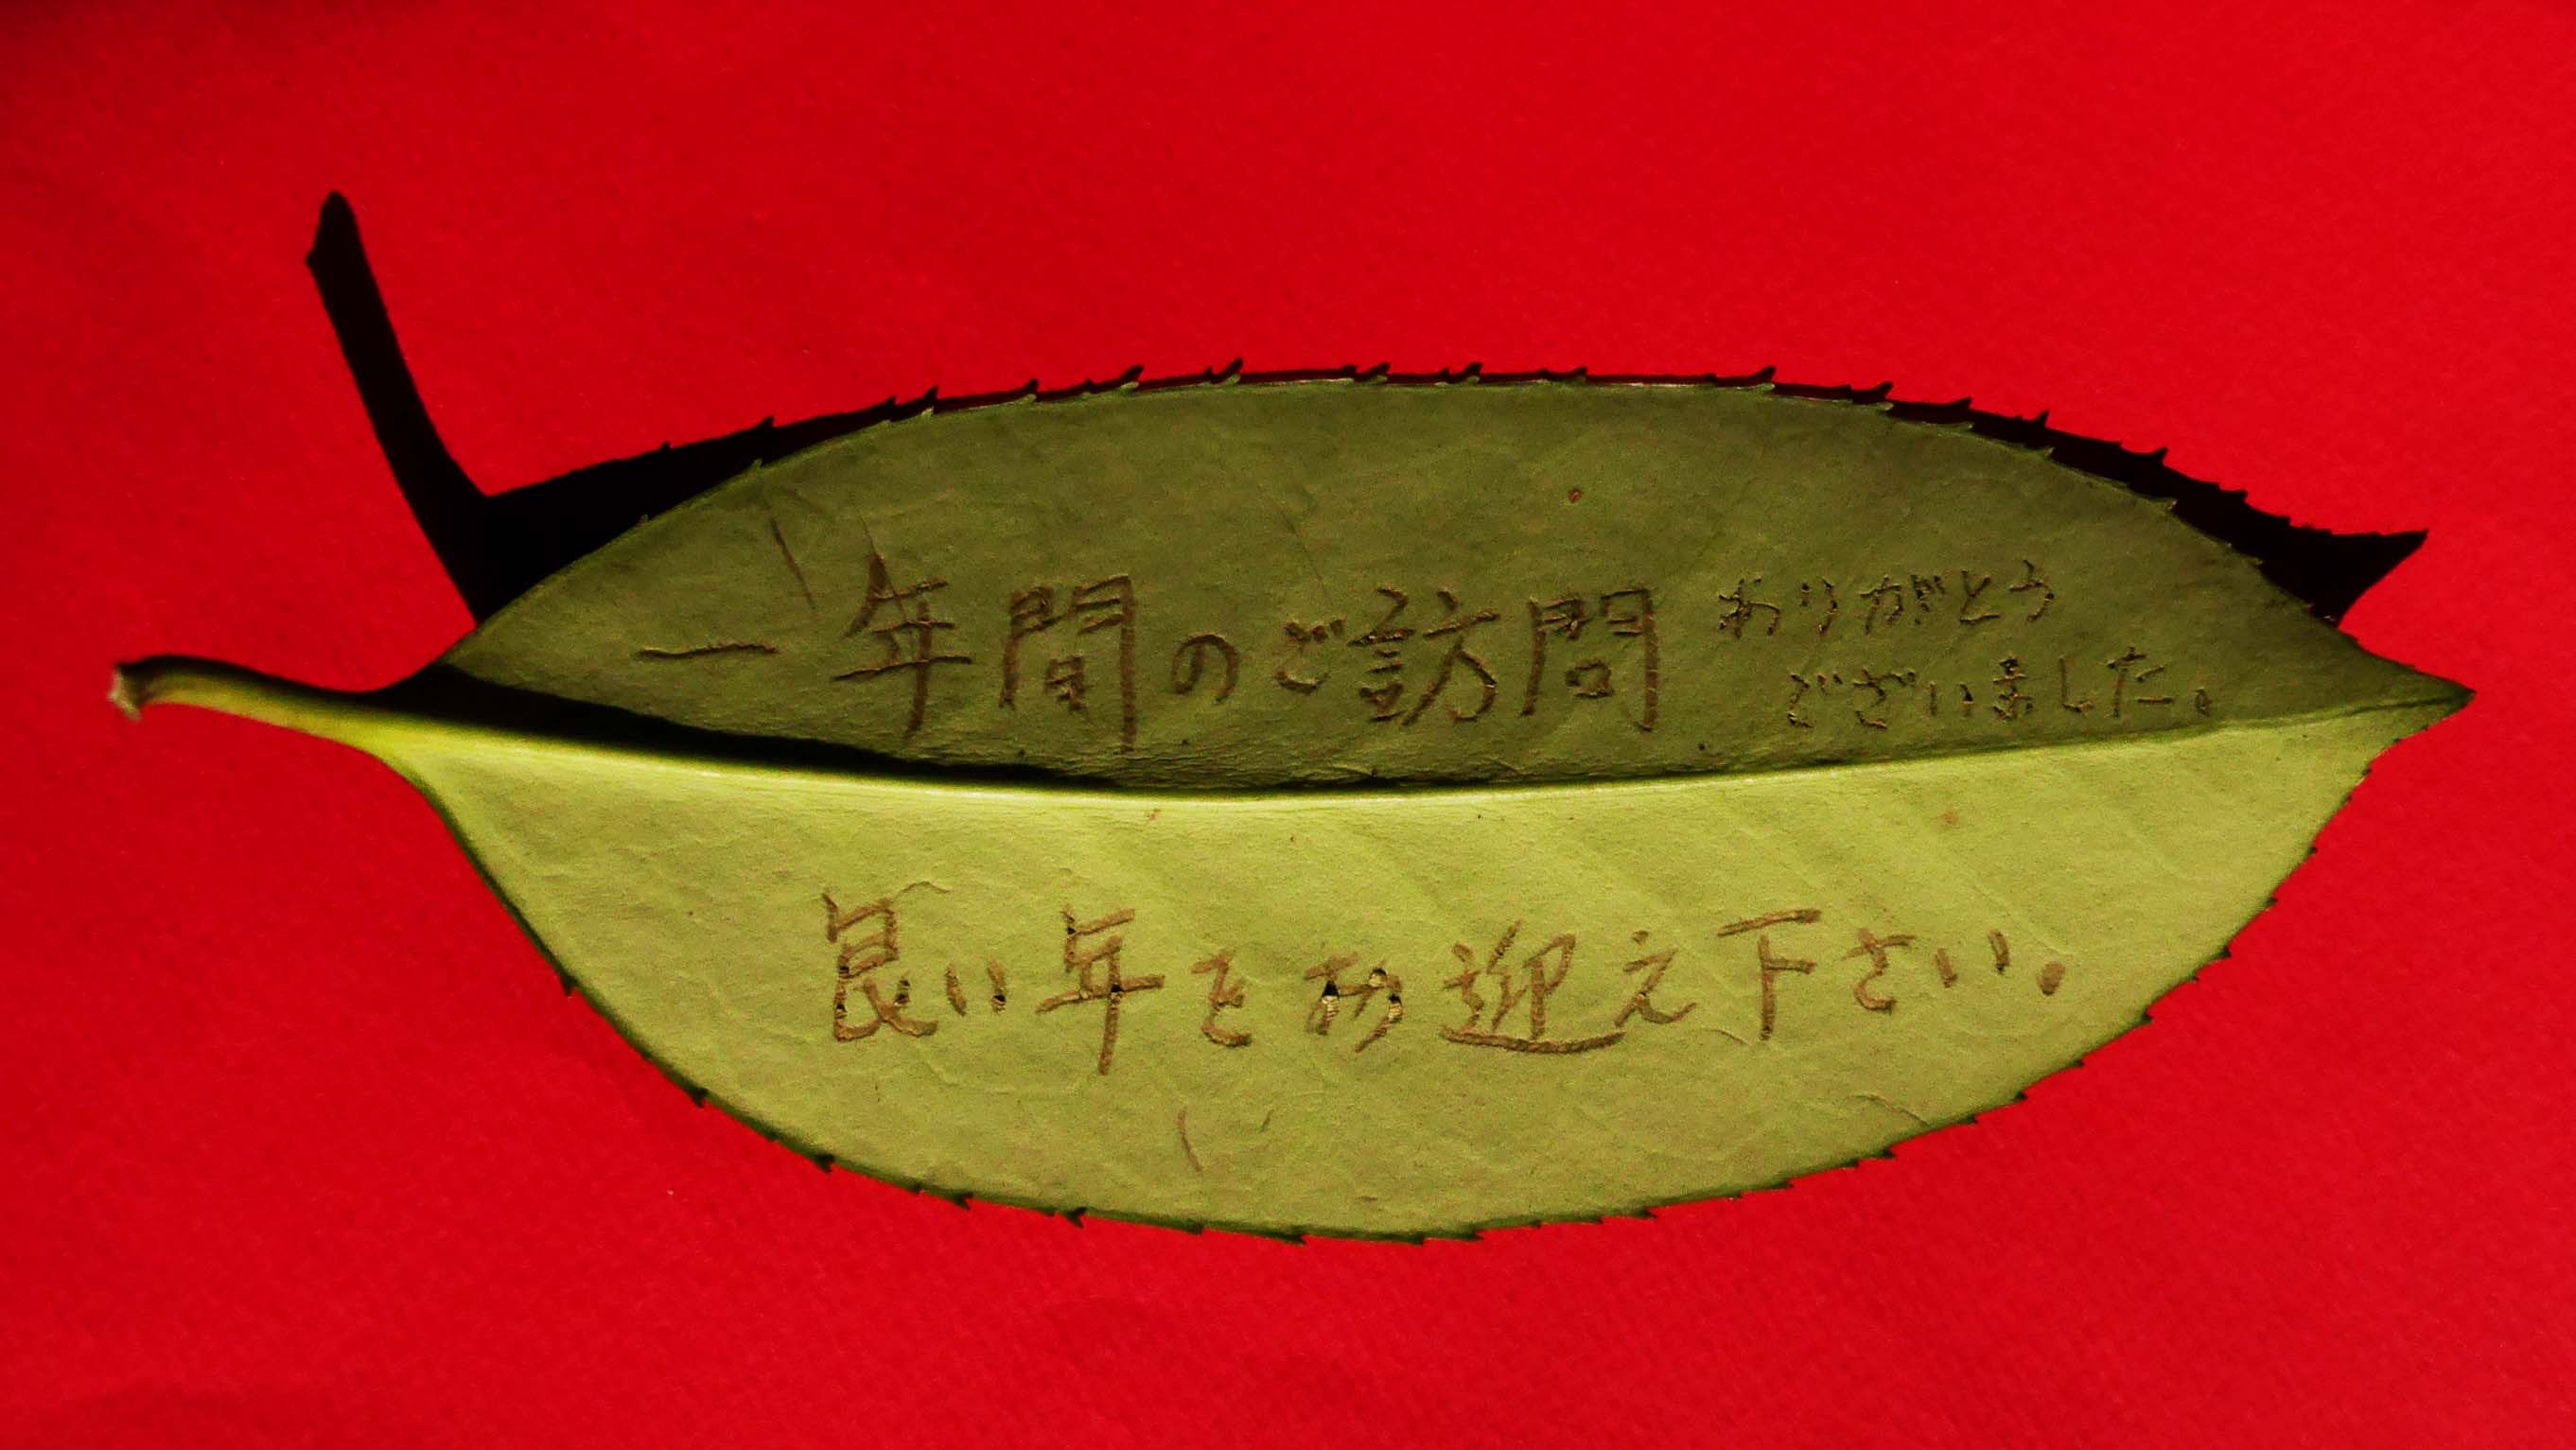 一年間のご訪問
ありがとう
ございました。
良い年をお迎え下さい。